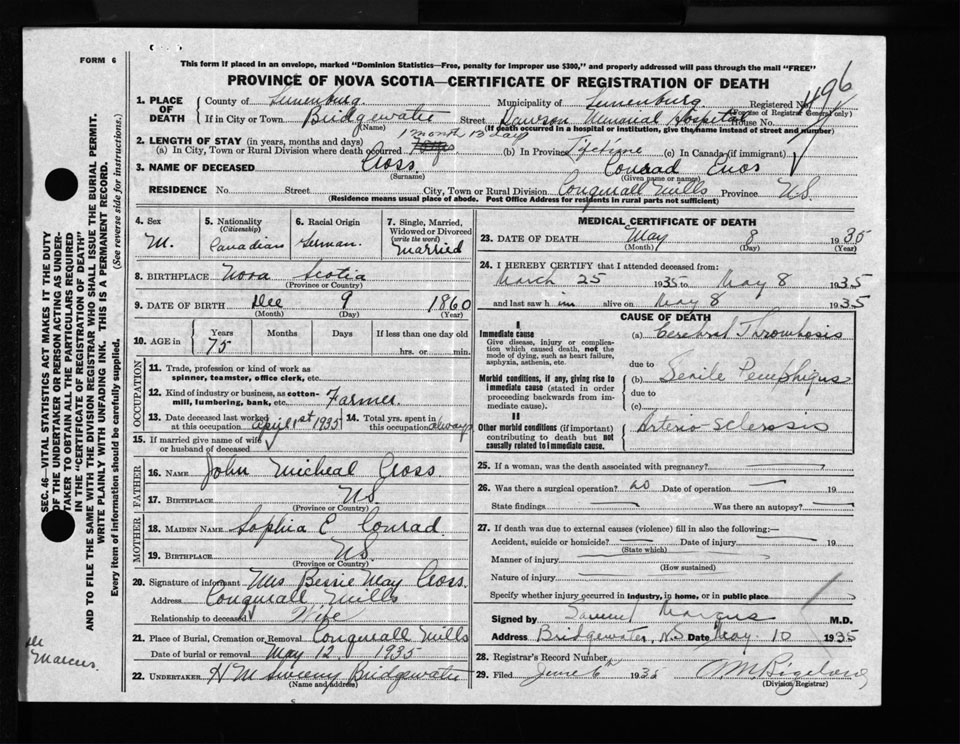 FORM 6
This form if placed in an envelope, marked "Dominion Statistics—Free, penalty for improper use $300," and properly addressed will pass through the mail "FREE"
PROVINCE OF NOVA SCOTIA—CERTIFICATE OF REGISTRATION OF DEATH
1. PLACE OF DEATH
County of Lunenburg. Municipality of Lunenburg. Registered No. 1196
(For use of Registrar General only)
If in City or Town Bridgewater Street Dawson Memorial Hospital House No.
(Name) (If death occurred in a hospital or institution, give the name instead of street and number)
2. LENGTH OF STAY (in years, months and days) 1 month 13 days
(a) In City, Town or Rural Division where death occurred (b) In Province Lifetime (c) In Canada (if immigrant)
3. NAME OF DECEASED Cross. Conrad Enos
(Surname) (Given name or names)
RESIDENCE No. Street City, Town or Rural Division Conquerall Mills Province NS.
(Residence means usual place of abode. Post Office Address for residents in rural parts not sufficient)
4. Sex M.
5. Nationality (Citizenship) Canadian
6. Racial Origin German.
7. Single, Married, Widowed or Divorced (write the word) Married
8. BIRTHPLACE Nova Scotia
(Province or County)
9. DATE OF BIRTH Dec 9 1860
(Month) (Day) (Year)
10. AGE in Years Months Days If less than one day old
75 hrs. or min.
OCCUPATION
11. Trade, profession or kind of work as spinner, teamster, office clerk, etc.
12. Kind of industry or business, as cotton-mill, lumbering, bank, etc. Farmer
13. Date deceased last worked at this occupation April 1st 1935 14. Total yrs. spent in this occupation always
15. If married give name of wife or husband of deceased
FATHER
16. NAME John Micheal Cross
17. BIRTHPLACE NS.
(Province or County)
MOTHER
18. MAIDEN NAME Sophia E Conrad
19. BIRTHPLACE NS.
(Province or County)
20. Signature of informant Mrs Bessie May Cross.
Address Conquerall Mills
Relationship to deceased Wife
21. Place of Burial, Cremation or Removal Conquerall Mills
Date of burial or removal May 12. 1935
22. UNDERTAKER Bridgewater
(Name and address)
MEDICAL CERTIFICATE OF DEATH
23. DATE OF DEATH May 8 1935
(Month) (Day) (Year)
24. I HEREBY CERTIFY that I attended deceased from:
March 25 1935 to May 8 1935
and last saw him alive on May 8 1935
CAUSE OF DEATH
I
Immediate cause
Give disease, injury or complication which caused death, not the mode of dying, such as heart failure, asphyxia, asthenia, etc.
(a) Cerebral Thrombosis
due to
Morbid conditions, if any, giving rise to immediate cause (stated in order proceeding backwards from immediate cause).
(b) Senile Pemphigus
due to
(c)
II
Other morbid conditions (if important) contributing to death but not causally related to immediate cause.
Arterio-sclerosis
25. If a woman, was the death associated with pregnancy?
26. Was there a surgical operation? no Date of operation 19
State findings Was there an autopsy?
27. If death was due to external causes (violence) fill in also the following:—
Accident, suicide or homicide? Date of injury 19
(State which)
Manner of injury
(How sustained)
Nature of injury
Specify whether injury occurred in industry, in home, or in public place
Signed by Samuel Marcus M.D.
Address Bridgewater, N.S. Date May 10 1935
28. Registrar's Record Number
29. Filed June 6th 1935
(Division Registrar)
SEC. 46—VITAL STATISTICS ACT MAKES IT THE DUTY
OF THE UNDERTAKER OR PERSON ACTING AS UNDERTAKER TO OBTAIN ALL THE PARTICULARS REQUIRED
IN THE "CERTIFICATE OF REGISTRATION OF DEATH"
AND TO FILE THE SAME WITH THE DIVISION REGISTRAR WHO SHALL ISSUE THE BURIAL PERMIT.
WRITE PLAINLY WITH UNFADING INK. THIS IS A PERMANENT RECORD.
Every item of information should be carefully supplied. (See reverse side for instructions.)
Marcus.